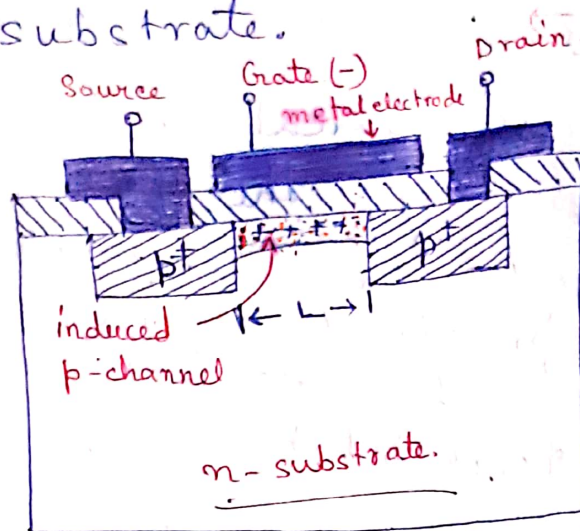 substrate.
Source
Gate (-)
Drain
metal electrode
+ + + +
p+
p+
← L →
induced
p-channel
n-substrate.